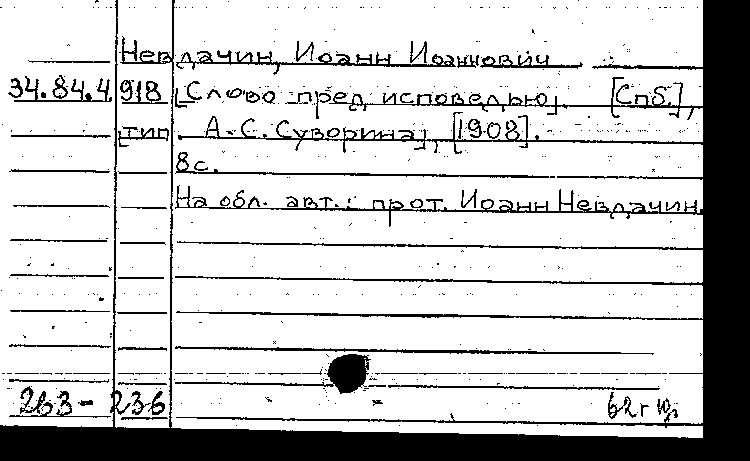 Невдачин, Иоанн Иоаннович
34.84.4.918 [Слово пред исповедью]. [Спб.],
[тип. А.С. Суворина], [1908].
8 с.
На обл. авт.: прот. Иоанн Невдачин.
263-236
62 г